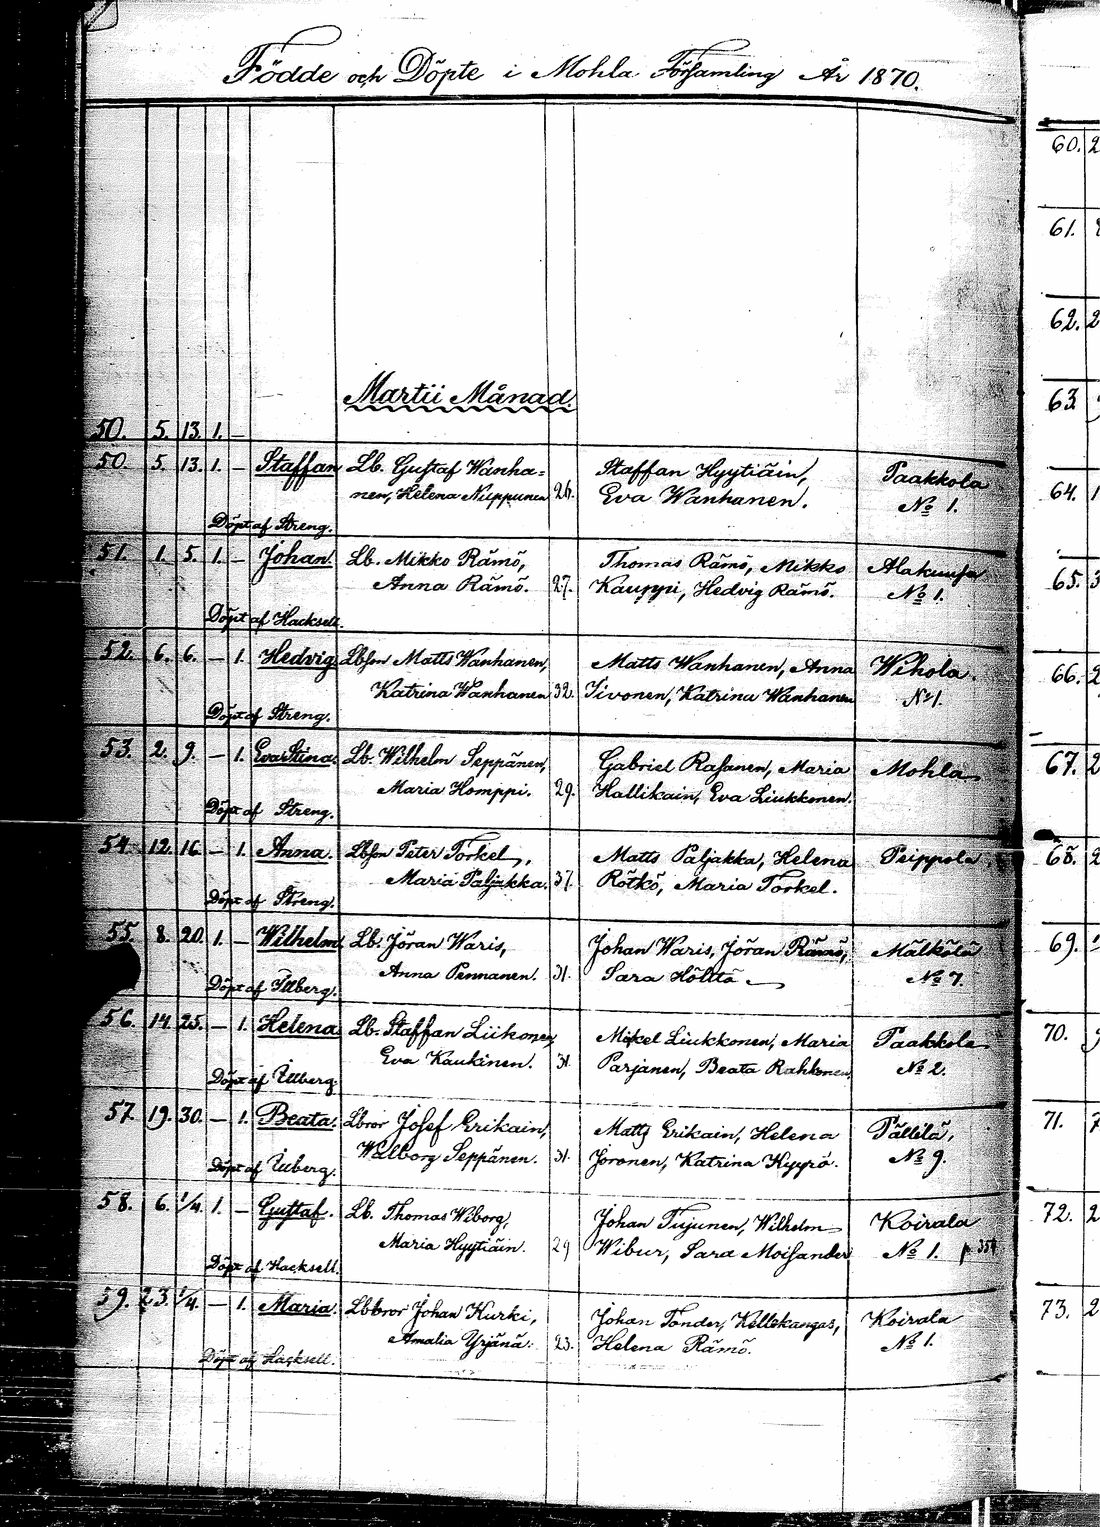 Födde och Döpte i Mohla Församling År 1870.
Martii Månad
50. 5. 13. 1. —
50. 5. 13. 1. — Staffan Lb. Gustaf Wanha= Staffan Hyytiäin, Paakkola
nen, Helena Nuppunen 26. Eva Wanhanen. No 1.
Döpt af Streng.
51. 1. 5. 1. — Johan. Lb. Mikko Rämö, Thomas Rämö, Mikko Alakuusa
Anna Rämö. 27. Kauppi, Hedvig Rämö. No 1.
Döpt af Hacksell.
52. 6. 6. — 1. Hedvig Lbson Matts Wanhanen, Matts Wanhanen, Anna Wihola.
Katrina Wanhanen 32. Sivonen, Katrina Wanhanen No 1.
Döpt af Streng.
53. 2. 9. — 1. Eva Stina. Lb. Wilhelm Seppänen, Gabriel Rasanen, Maria Mohla
Maria Homppi. 29. Hallikain, Eva Liukkonen.
Döpt af Streng.
54. 12. 16. — 1. Anna. Lbson Peter Torkel, Matts Paljakka, Helena Peippola
Maria Paljakka. 37. Rötkö, Maria Torkel.
Döpt af Streng.
55. 8. 20. 1. — Wilhelm Lb. Jöran Waris, Johan Waris, Jöran Rämö, Mälkölä
Anna Pennanen. 31. Sara Hölttö No 7.
Döpt af Illberg.
56. 14. 25. — 1. Helena Lb. Staffan Liikonen, Mikel Liukkonen, Maria Paakkola
Eva Kaukinen. 31. Parjanen, Beata Rahkonen, No 2.
Döpt af Illberg.
57. 19. 30. — 1. Beata. Lbror Josef Erikain, Matts Erikain, Helena Pällilä,
Walborg Seppänen. 31. Joronen, Katrina Kyyrö. No 9.
Döpt af Illberg.
58. 6. 1/4. 1. — Gustaf. Lb. Thomas Wiborg, Johan Tujunen, Wilhelm Koirala
Maria Hyytiäin. 29 Wibur, Sara Moisander No 1. p 354
Döpt af Hacksell.
59. 23. 1/4. — 1. Maria. Lbbror Johan Kurki, Johan Tönder, Kellokangas, Koirala
Amalia Yrjänä. 23. Helena Rämö. No 1.
Döpt af Hacksell.
60. 2
61.
62. 2
63
64. 1
65. 3
66. 2
67. 2
68. 2
69.
70.
71. 7
72. 2
73. 2